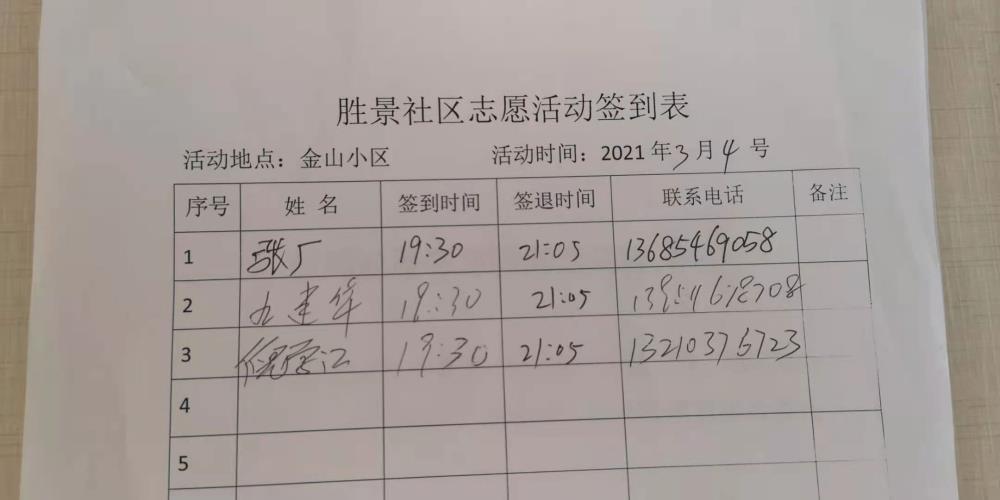 胜景社区志愿活动签到表
活动地点：金山小区 活动时间：2021年3月4号
序号 姓 名 签到时间 签退时间 联系电话 备注
1 张广 19:30 21:05 13685469058
2 建华 19:30 21:05
3 19:30 21:05 13210376723
4
5